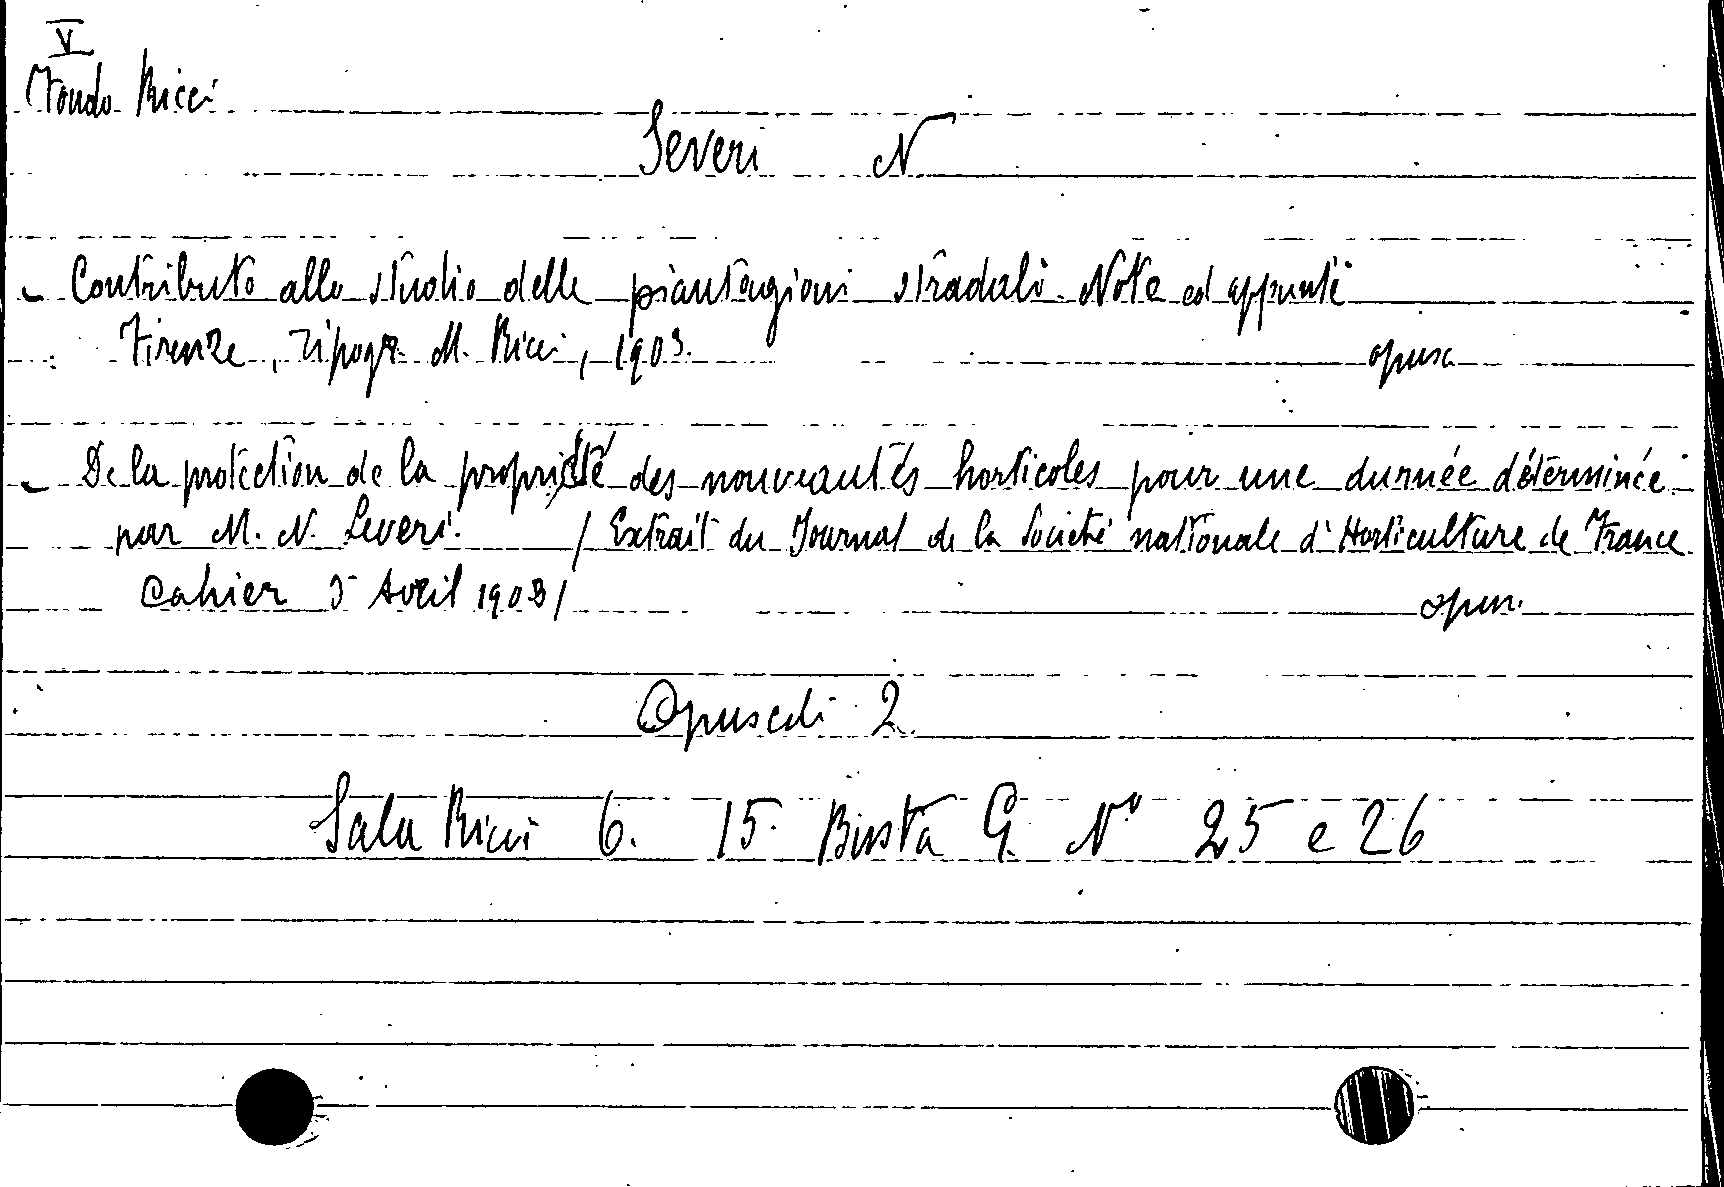 V
Fondo Ricci
Severi N
- Contributo allo studio delle piantagioni stradali. Note ed appunti
Firenze, Tipogr. M. Ricci, 1903. opusc
- De la protection de la propriété des nouveautés horticoles pour une durnée déterminée
par M. N. Severi. / Extrait du Journal de la Société nationale d'Horticulture de France
Cahier d'Avril 1903 / opus.
Opuscoli 2
Sala Ricci 6. 15. Busta G. N° 25 e 26